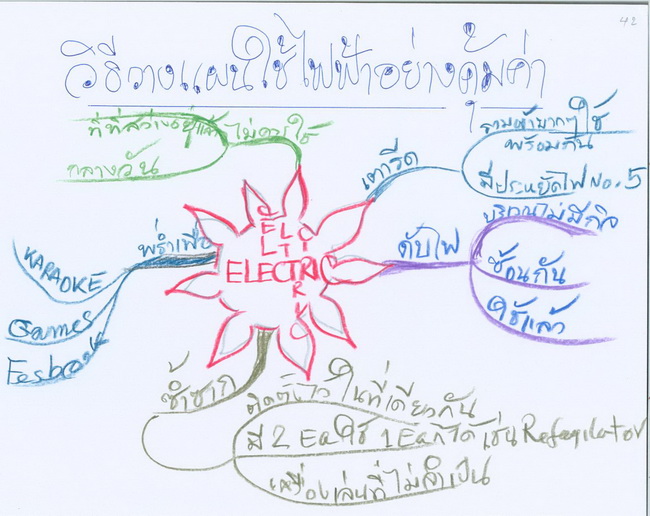 42
วิธีวางแผนใช้ไฟฟ้าอย่างคุ้มค่า
ที่ที่สว่างอยู่แล้ว
กลางวัน
ไม่ควรใช้
เตารีด
รวมผ้ามากๆ ใช้
พร้อมกัน
มีประหยัดไฟ No. 5
ดับไฟ
บริเวณไม่มีกิจ
ซ้อนกัน
ใช้แล้ว
ELECTRIC
KARAOKE
Games
Fesbook
ซ้ำซาก
ติดตั้งไว้ในที่เดียวกัน
มี 2 Ea ใช้ 1 Ea ก็ได้ เช่น
เครื่องเล่นที่ไม่จำเป็น